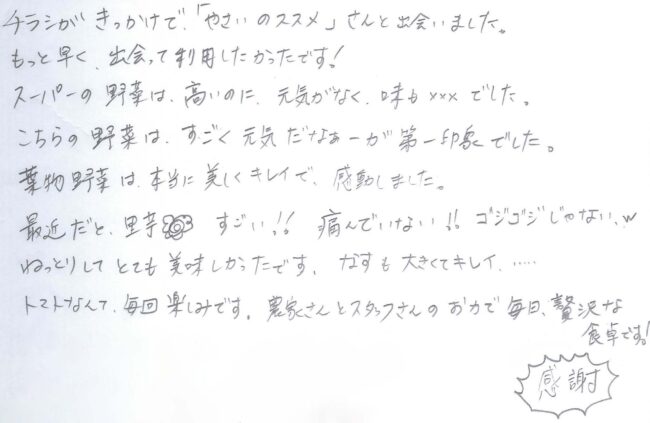 チラシがきっかけで、「やさいのススメ」さんと出会いました。
もっと早く、出会って利用したかったです!
スーパーの野菜は、高いのに、元気がなく、味も×××でした。
こちらの野菜は、すごく元気だなぁーが第一印象でした。
葉物野菜は、本当に美しくキレイで、感動しました。
最近だと、里芋 すごい!! 痛んでいない!! ゴジゴジじゃない、w
ねっとりしてとても美味しかったです。なすも大きくてキレイ、……
トマトなんて、毎回楽しみです。農家さんとスタッフさんのお力で毎日、贅沢な
食卓です!
感謝